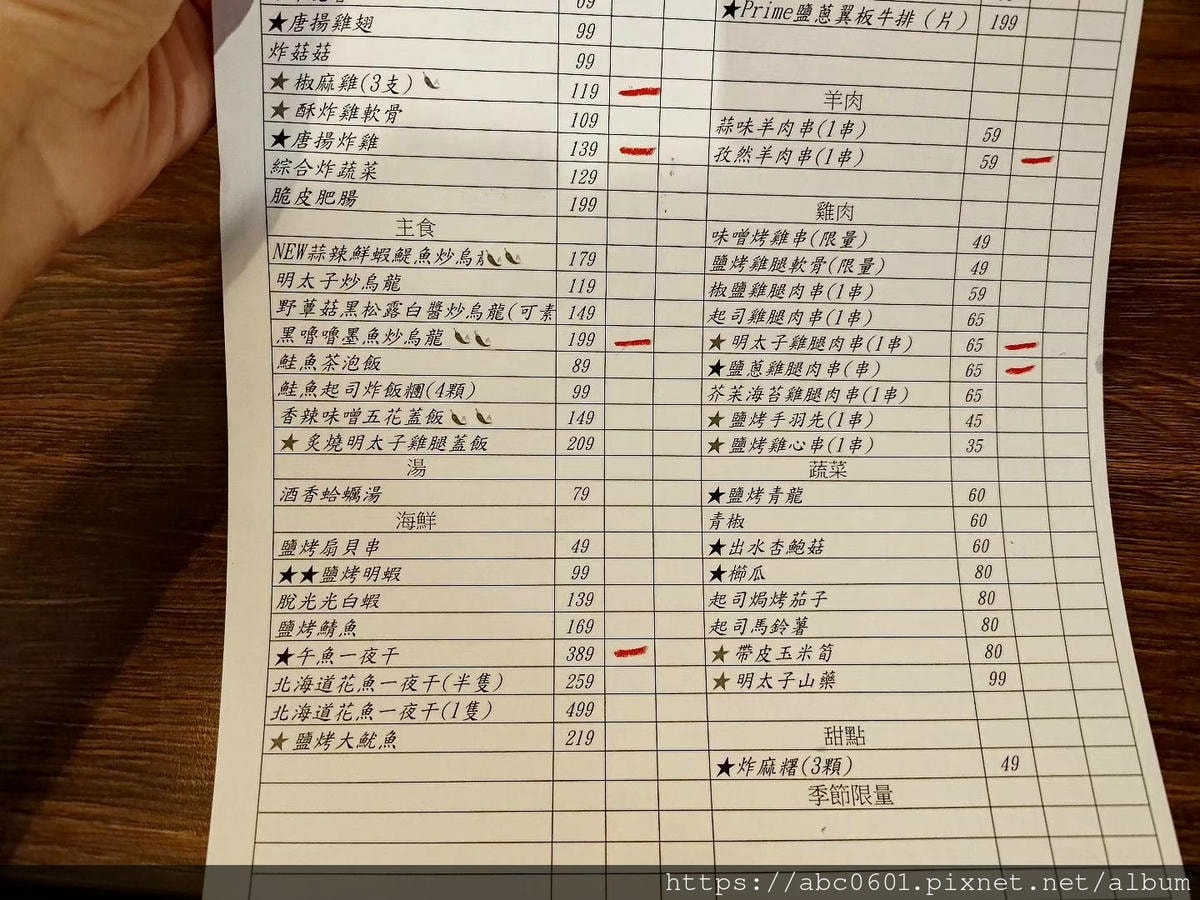 69
★唐揚雞翅 99
炸菇菇 99
★椒麻雞(3支) 119
★酥炸雞軟骨 109
★唐揚炸雞 139
綜合炸蔬菜 129
脆皮肥腸 199
主食
NEW蒜辣鮮蝦鯷魚炒烏 179
明太子炒烏龍 119
野蕈菇黑松露白醬炒烏龍(可素 149
黑嚕嚕墨魚炒烏龍 199
鮭魚茶泡飯 89
鮭魚起司炸飯糰(4顆) 99
香辣味噌五花蓋飯 149
★炙燒明太子雞腿蓋飯 209
湯
酒香蛤蠣湯 79
海鮮
鹽烤扇貝串 49
★★鹽烤明蝦 99
脫光光白蝦 139
鹽烤鯖魚 169
★午魚一夜干 389
北海道花魚一夜干(半隻) 259
北海道花魚一夜干(1隻) 499
★鹽烤大魷魚 219
★Prime鹽蔥翼板牛排(片) 199
羊肉
蒜味羊肉串(1串) 59
孜然羊肉串(1串) 59
雞肉
味噌烤雞串(限量) 49
鹽烤雞腿軟骨(限量) 49
椒鹽雞腿肉串(1串) 59
起司雞腿肉串(1串) 65
★明太子雞腿肉串(1串) 65
★鹽蔥雞腿肉串(串) 65
芥茉海苔雞腿肉串(1串) 65
★鹽烤手羽先(1串) 45
★鹽烤雞心串(1串) 35
蔬菜
★鹽烤青龍 60
青椒 60
★出水杏鮑菇 60
★櫛瓜 80
起司焗烤茄子 80
起司馬鈴薯 80
★帶皮玉米筍 80
★明太子山藥 99
甜點
★炸麻糬(3顆) 49
季節限量
https://abc0601.pixnet.net/album